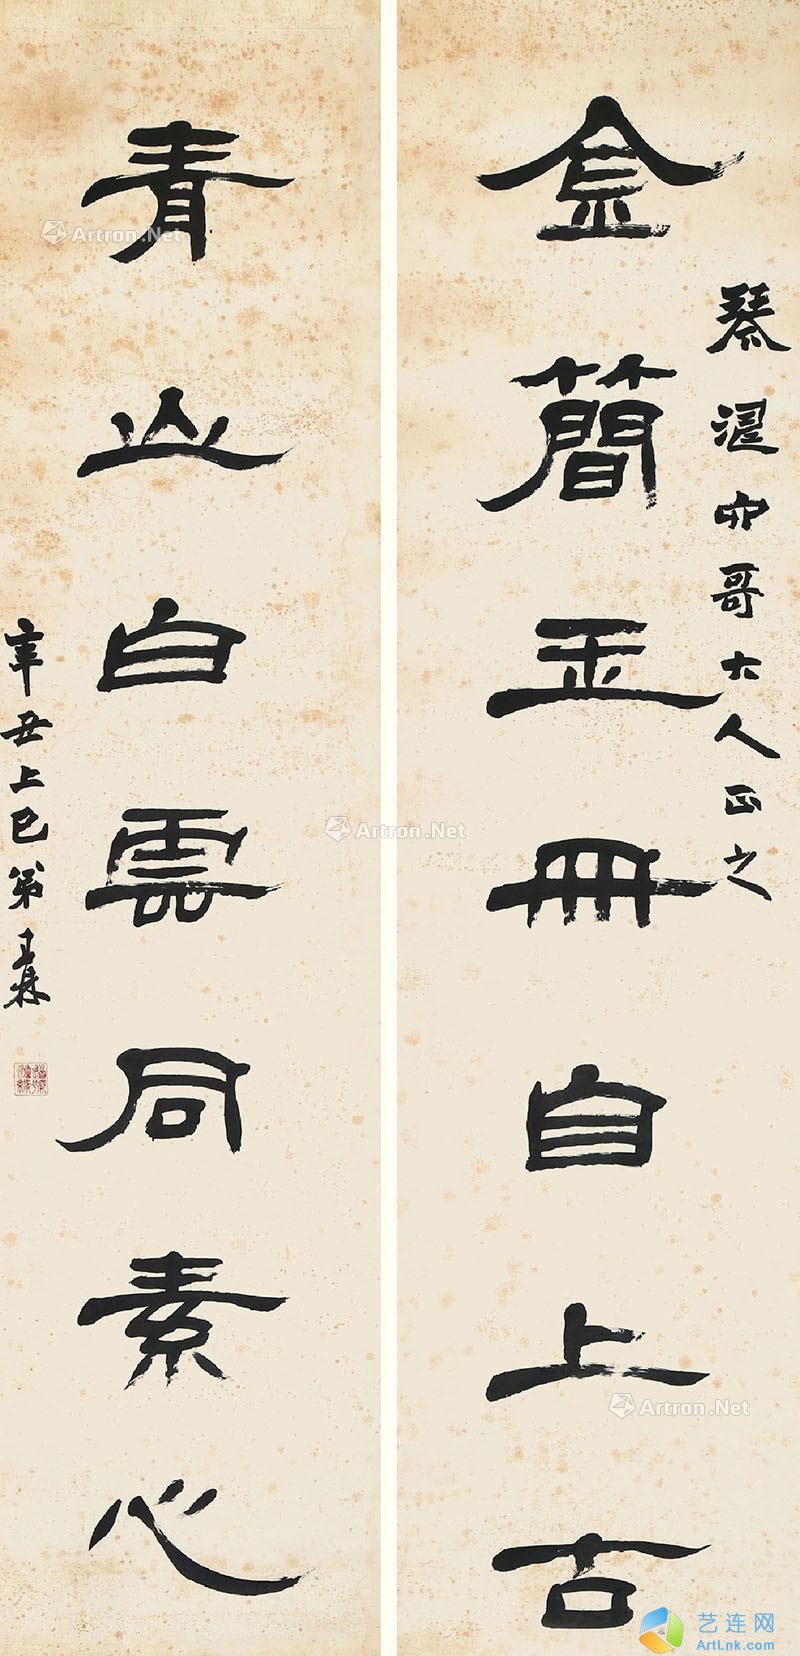 金簡玉冊自上古
琴涵六哥大人正之
青山白雲同素心
辛丑上巳弟王森
Artron.Net
Artron.Net
Artron.Net
艺连网
ArtLnk.com